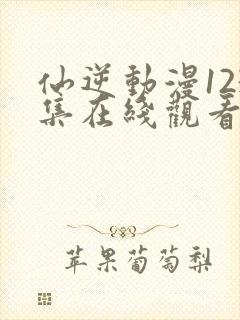 仙逆動漫12
集在綫觀看
苹果葡萄梨